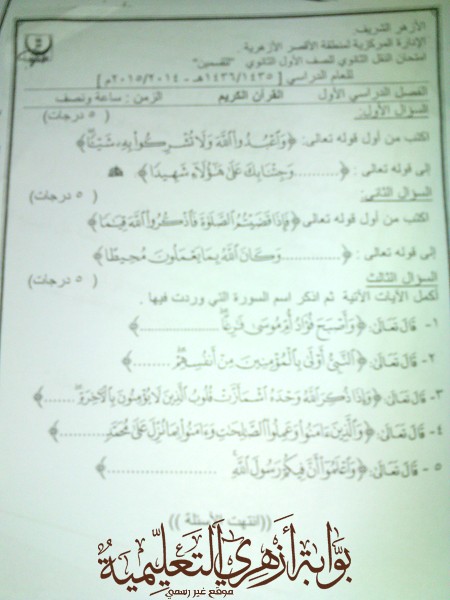 الأزهر الشريف.
الإدارة المركزية لمنطقة الأقصر الأزهرية.
امتحان النقل الثانوي للصف الأول الثانوي "القسمين"
للعام الدراسي [ ١٤٣٦/١٤٣٥هـ - ٢٠١٥/٢٠١٤م ]
الفصل الدراسي الأول القرآن الكريم الزمن: ساعة ونصف
السؤال الأول: ( ٥ درجات )
اكتب من أول قوله تعالى: ﴿وَاعْبُدُوا اللَّهَ وَلَا تُشْرِكُوا بِهِ شَيْئًا﴾
إلى قوله تعالى : ﴿..........وَجِئْنَا بِكَ عَلَى هَؤُلَاءِ شَهِيدًا﴾
السؤال الثاني: ( ٥ درجات )
اكتب من أول قوله تعالى ﴿فَإِذَا قَضَيْتُمُ الصَّلَاةَ فَاذْكُرُوا اللَّهَ قِيَامًا﴾
إلى قوله تعالى ﴿..........وَكَانَ اللَّهُ بِمَا يَعْمَلُونَ مُحِيطًا﴾
السؤال الثالث ( ٥ درجات )
أكمل الآيات الآتية ثم اذكر اسم السورة التي وردت فيها .
١- قَالَ تَعَالَى: ﴿وَأَصْبَحَ فُؤَادُ أُمِّ مُوسَى فَارِغًا ..........﴾
٢- قَالَ تَعَالَى: ﴿النَّبِيُّ أَوْلَى بِالْمُؤْمِنِينَ مِنْ أَنْفُسِهِمْ ..........﴾
٣- قَالَ تَعَالَى: ﴿وَإِذَا ذُكِرَ اللَّهُ وَحْدَهُ اشْمَأَزَّتْ قُلُوبُ الَّذِينَ لَا يُؤْمِنُونَ بِالْآخِرَةِ ......﴾
٤- قَالَ تَعَالَى: ﴿وَالَّذِينَ ءَامَنُوا وَعَمِلُوا الصَّالِحَاتِ وَءَامَنُوا بِمَا نُزِّلَ عَلَى مُحَمَّدٍ ........﴾
٥- قَالَ تَعَالَى: ﴿وَاعْلَمُوا أَنَّ فِيكُمْ رَسُولَ اللَّهِ ....................﴾
((انتهت الأسئلة ))
بوابة أزهري التعليمية
موقع غير رسمي